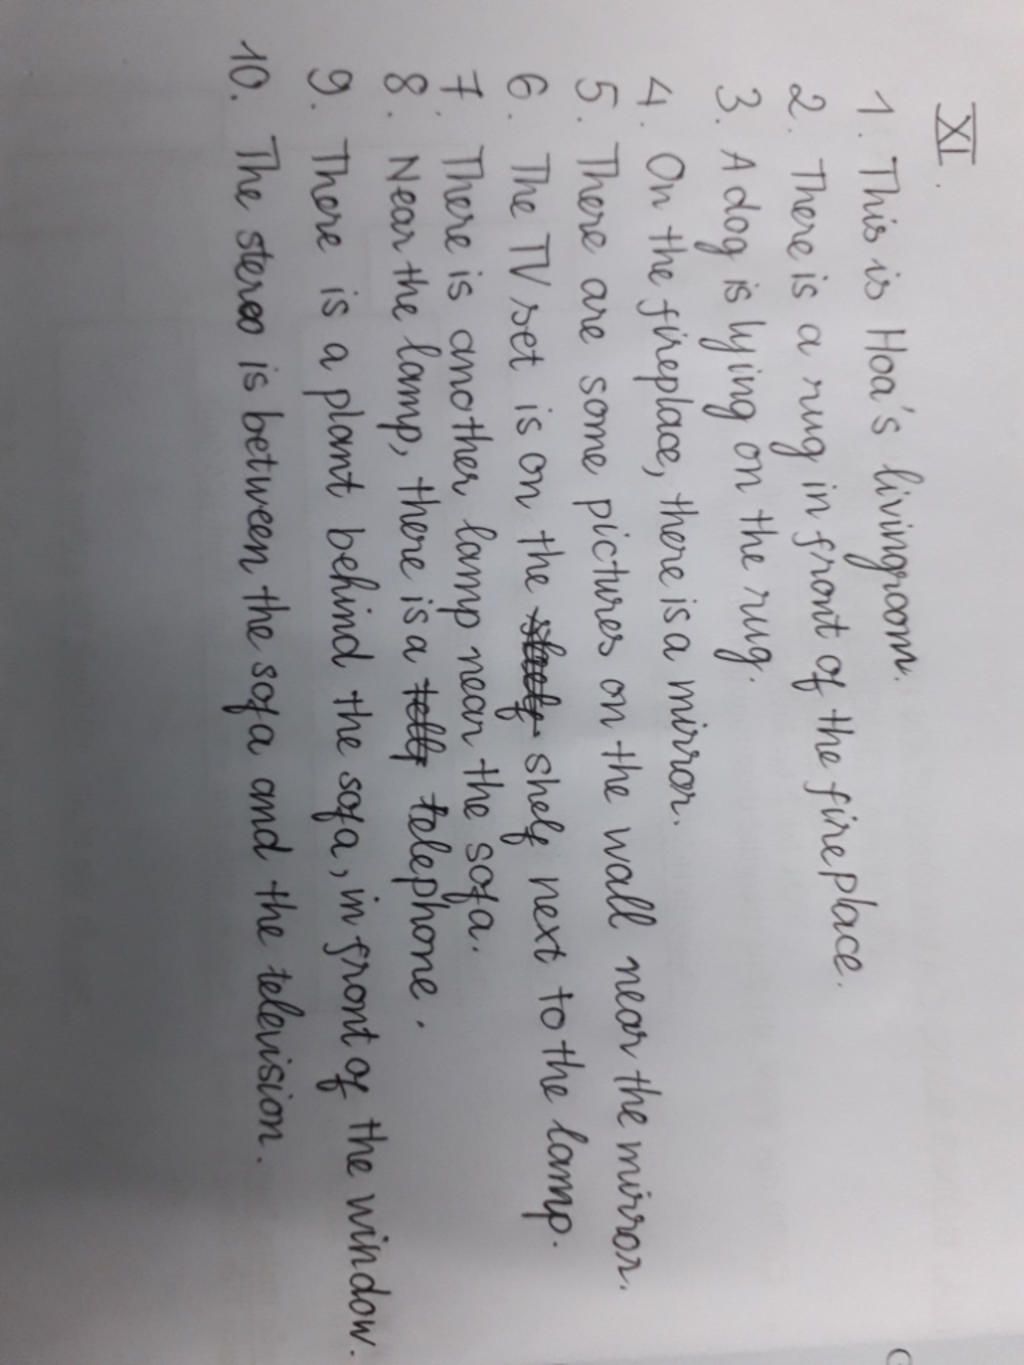 XI.
1. This is Hoa's livingroom.
2. There is a rug in front of the fireplace.
3. A dog is lying on the rug.
4. On the fireplace, there is a mirror.
5. There are some pictures on the wall near the mirror.
6. The TV set is on the shelf next to the lamp.
7. There is another lamp near the sofa.
8. Near the lamp, there is a telephone.
9. There is a plant behind the sofa, in front of the window.
10. The stereo is between the sofa and the television.